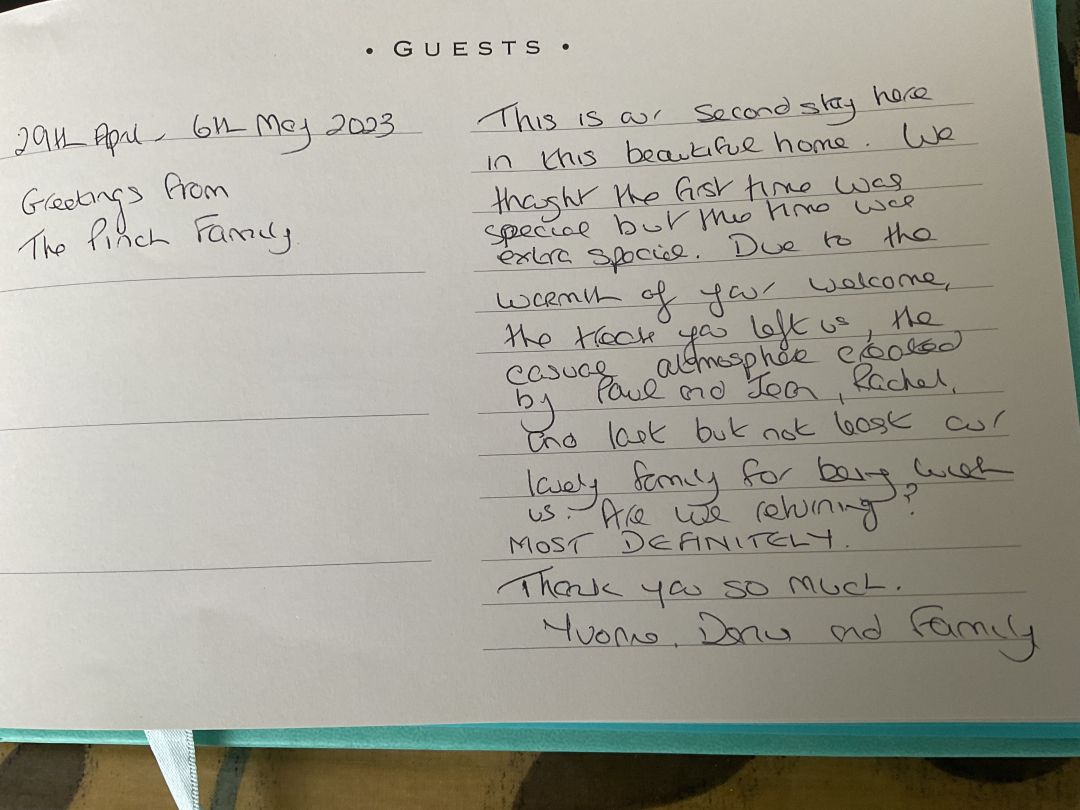 • GUESTS •
29th April - 6th May 2023
Greetings from
The Pinch Family
This is our second stay here
in this beautiful home. We
thought the first time was
special but this time was
extra special. Due to the
warmth of your welcome,
the treats you left us, the
casual atmosphere created
by Paul and Jean, Rachel,
and last but not least our
lovely family for being with
us. Are we returning?
MOST DEFINITELY.
Thank you so much.
Yvonne, and Family